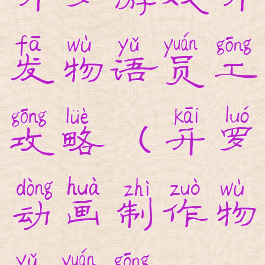 fā wù yǔ yuán gōng
发物语员工
gōng lüè kāi luó
攻略（开罗
dòng huà zhì zuò wù
动画制作物
yǔ yuán gōng